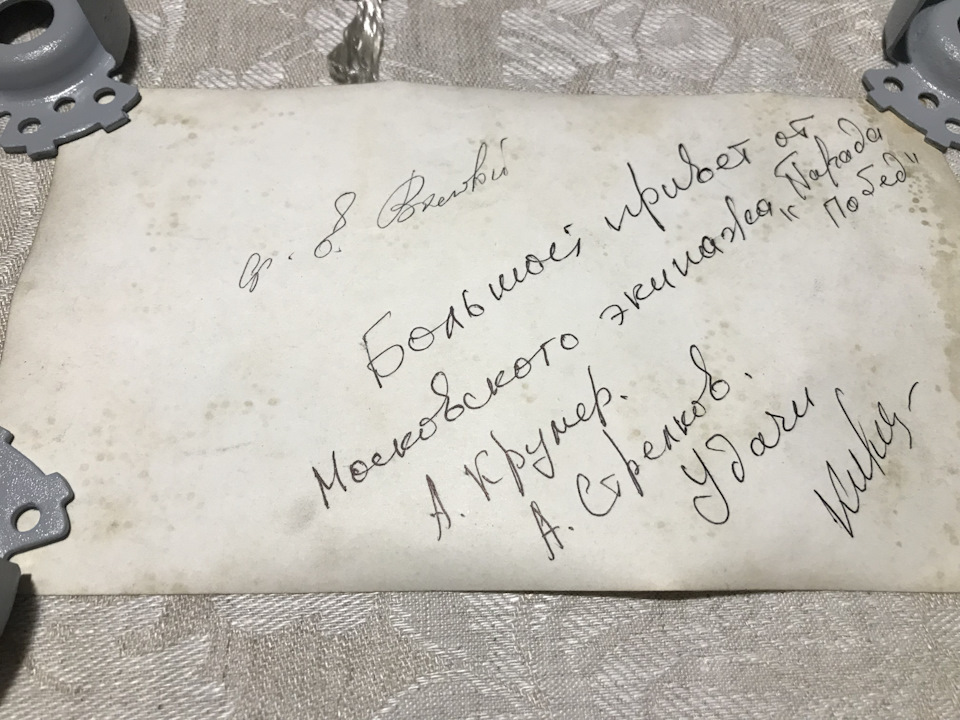 Большой привет от
Московского экипажа "Парада
Побед"
А. Крумер.
А. Стрелков.
Удачи